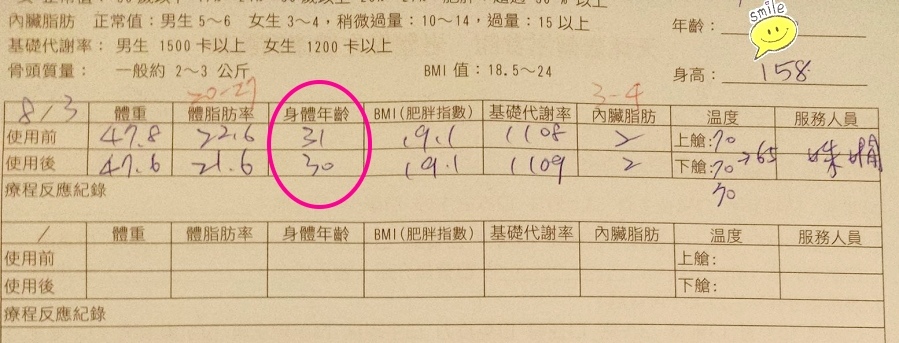 內臟脂肪 正常值：男生 5～6 女生 3～4，稍微過量：10～14，過量：15 以上
smile
年齡：
基礎代謝率： 男生 1500 卡以上 女生 1200 卡以上
骨頭質量： 一般約 2～3 公斤 BMI 值：18.5～24 身高： 158
20-27 3-4
8/3 體重 體脂肪率 身體年齡 BMI(肥胖指數) 基礎代謝率 內臟脂肪 温度 服務人員
使用前 47.8 22.6 31 19.1 1108 2 上艙:70
使用後 47.6 21.6 30 19.1 1109 2 下艙:70→65
療程反應紀錄 70
/ 體重 體脂肪率 身體年齡 BMI(肥胖指數) 基礎代謝率 內臟脂肪 温度 服務人員
使用前 上艙:
使用後 下艙:
療程反應紀錄